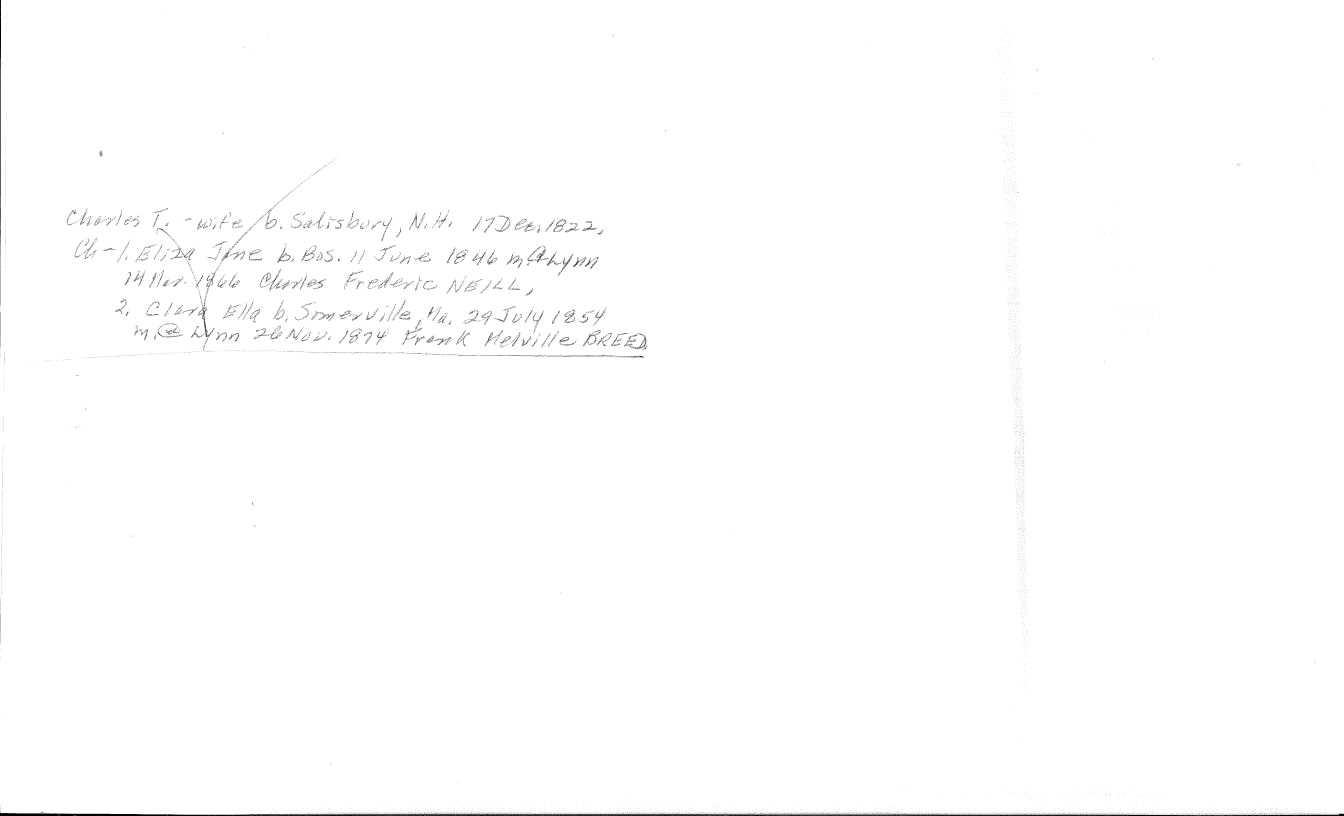 Charles T. - wife b. Salisbury, N.H. 17 Dec. 1822,
Ch - 1. Eliza Jane b. Bos. 11 June 1846 m. @ Lynn
14 Mar. 1866 Charles Frederic NEILL,
2. Clara Ella b. Somerville, Ma. 29 July 1854
m. @ Lynn 26 Nov. 1874 Frank Melville BREED.